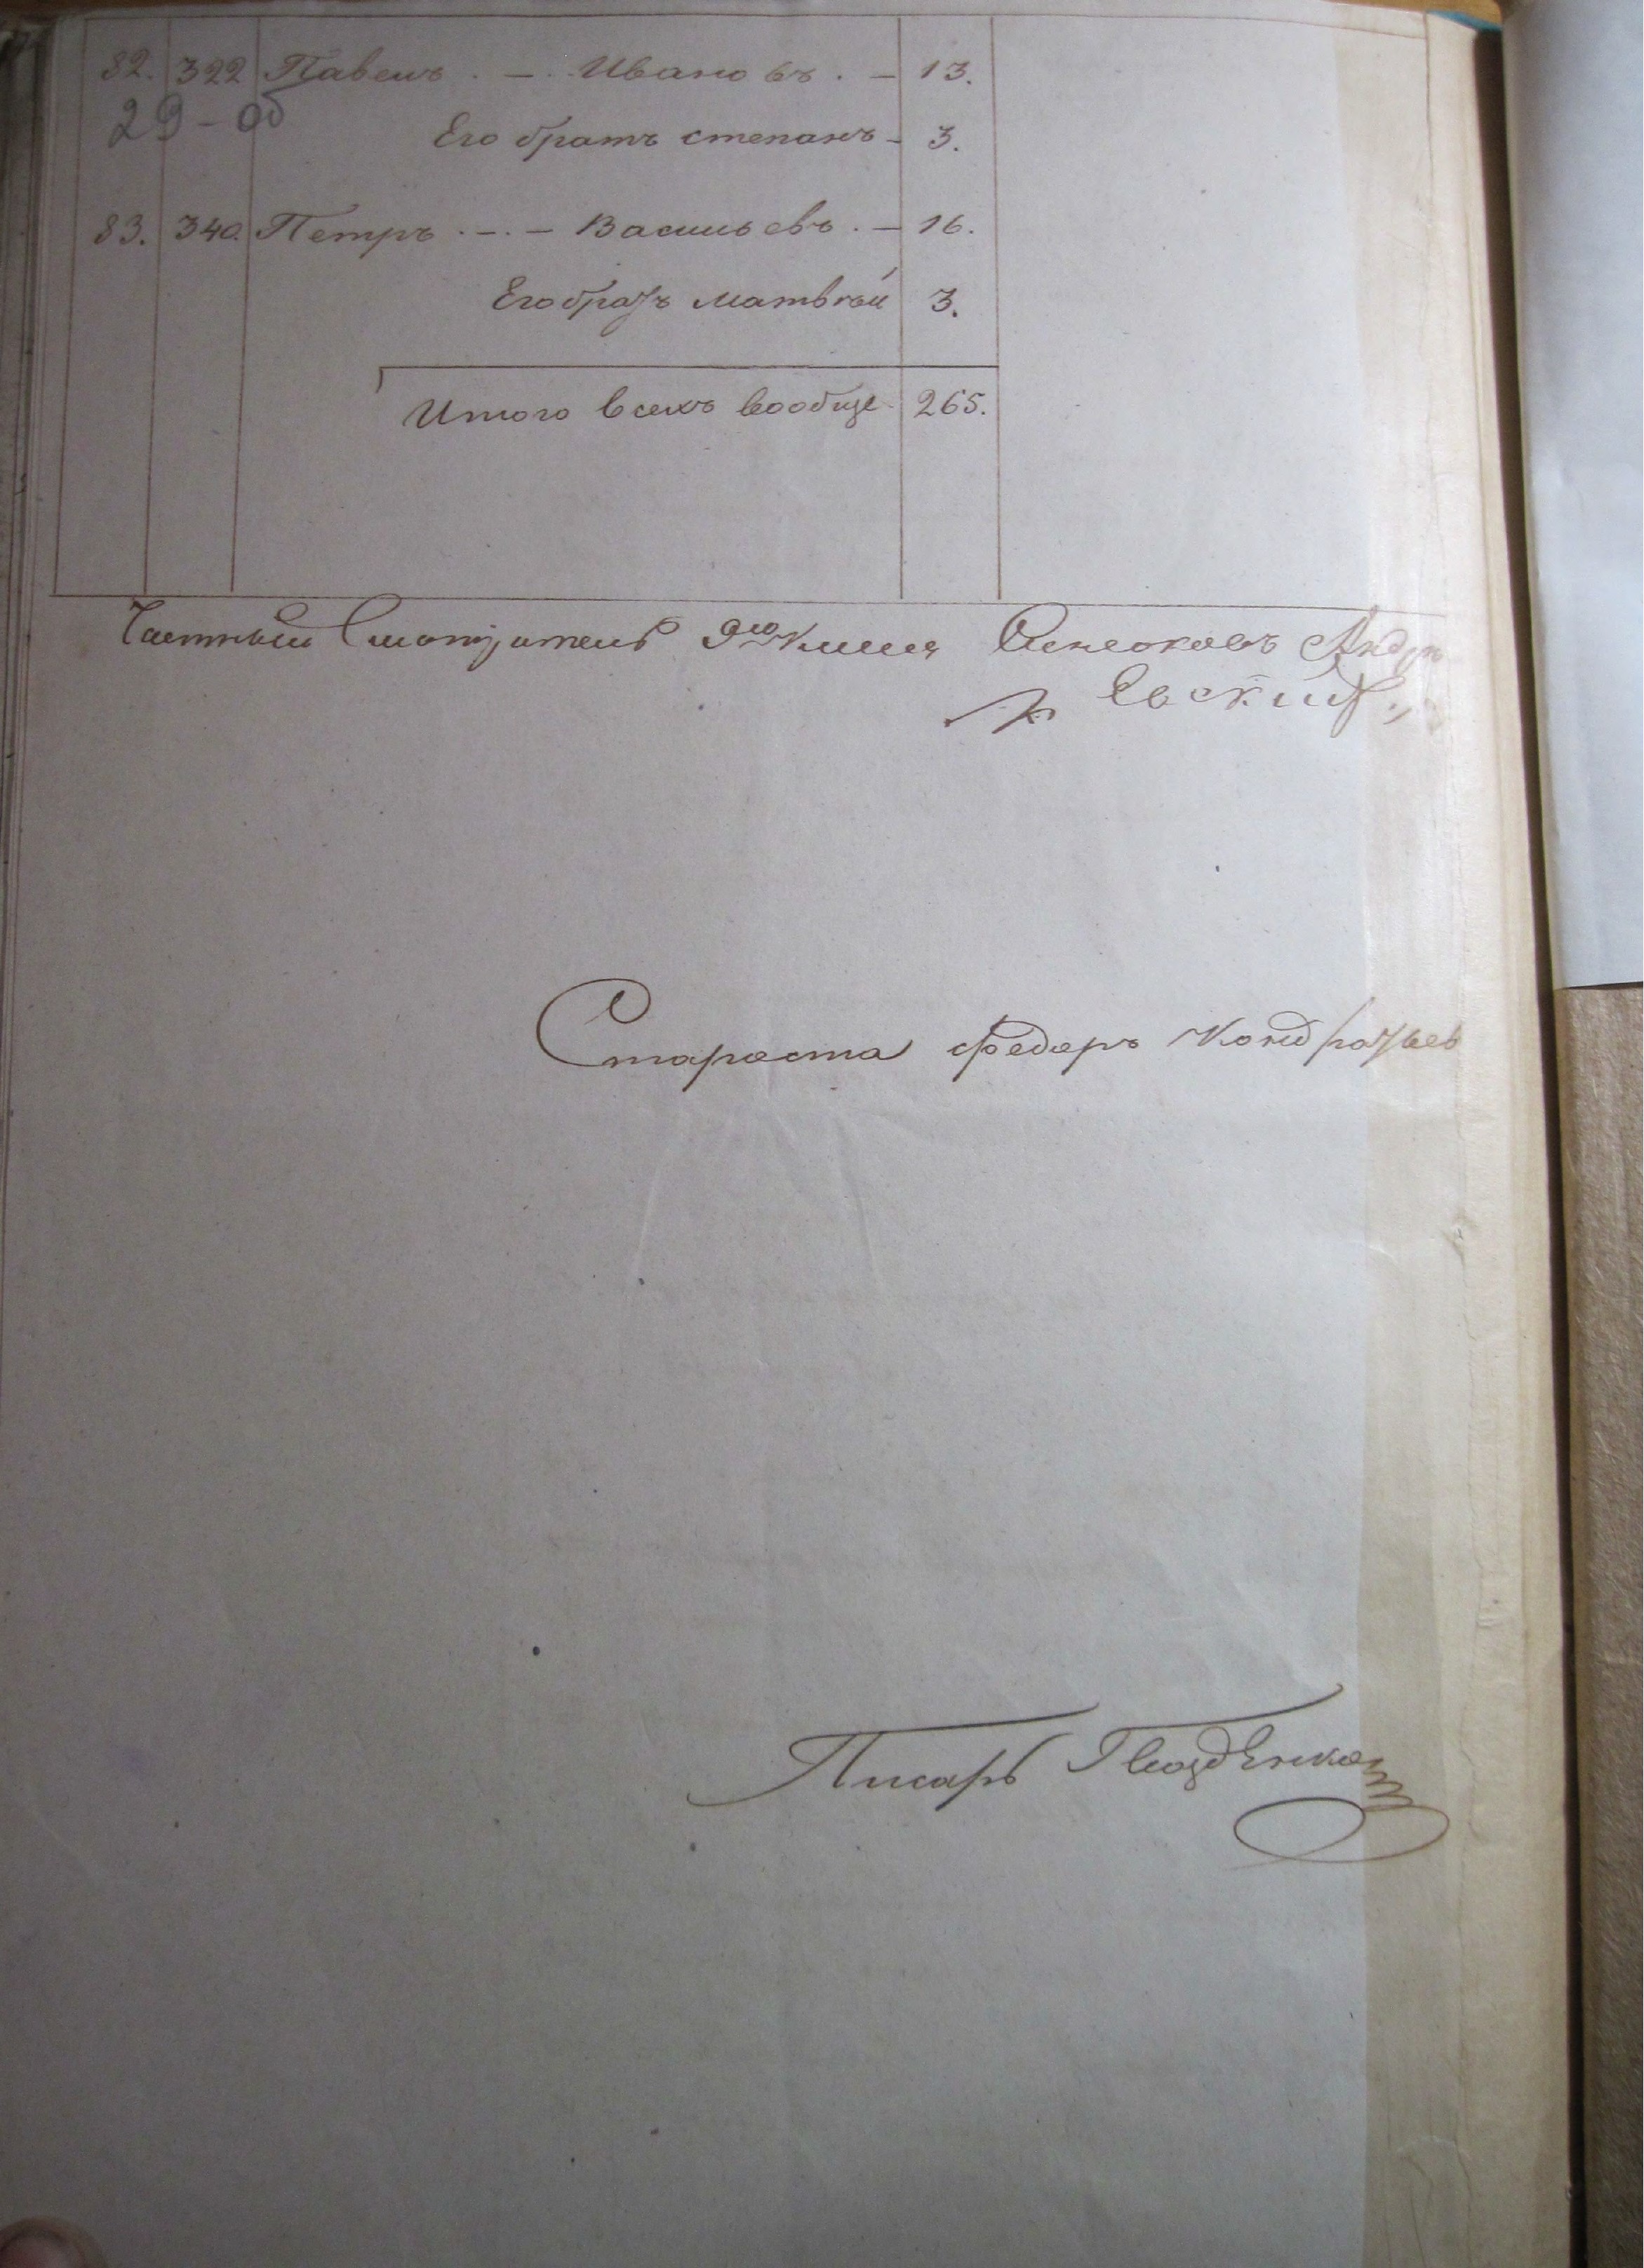 82. 322 Павелъ . — . Ивановъ . — 13.
29-об
Его братъ степанъ - 3.
83. 340. Петръ . — . — Васильевъ . — 16.
Его братъ матвѣй 3.
Итого всехъ вообще 265.
Частный Смотритель
Евскій
Староста Федоръ Кондратьев
Писарь Гвозденко